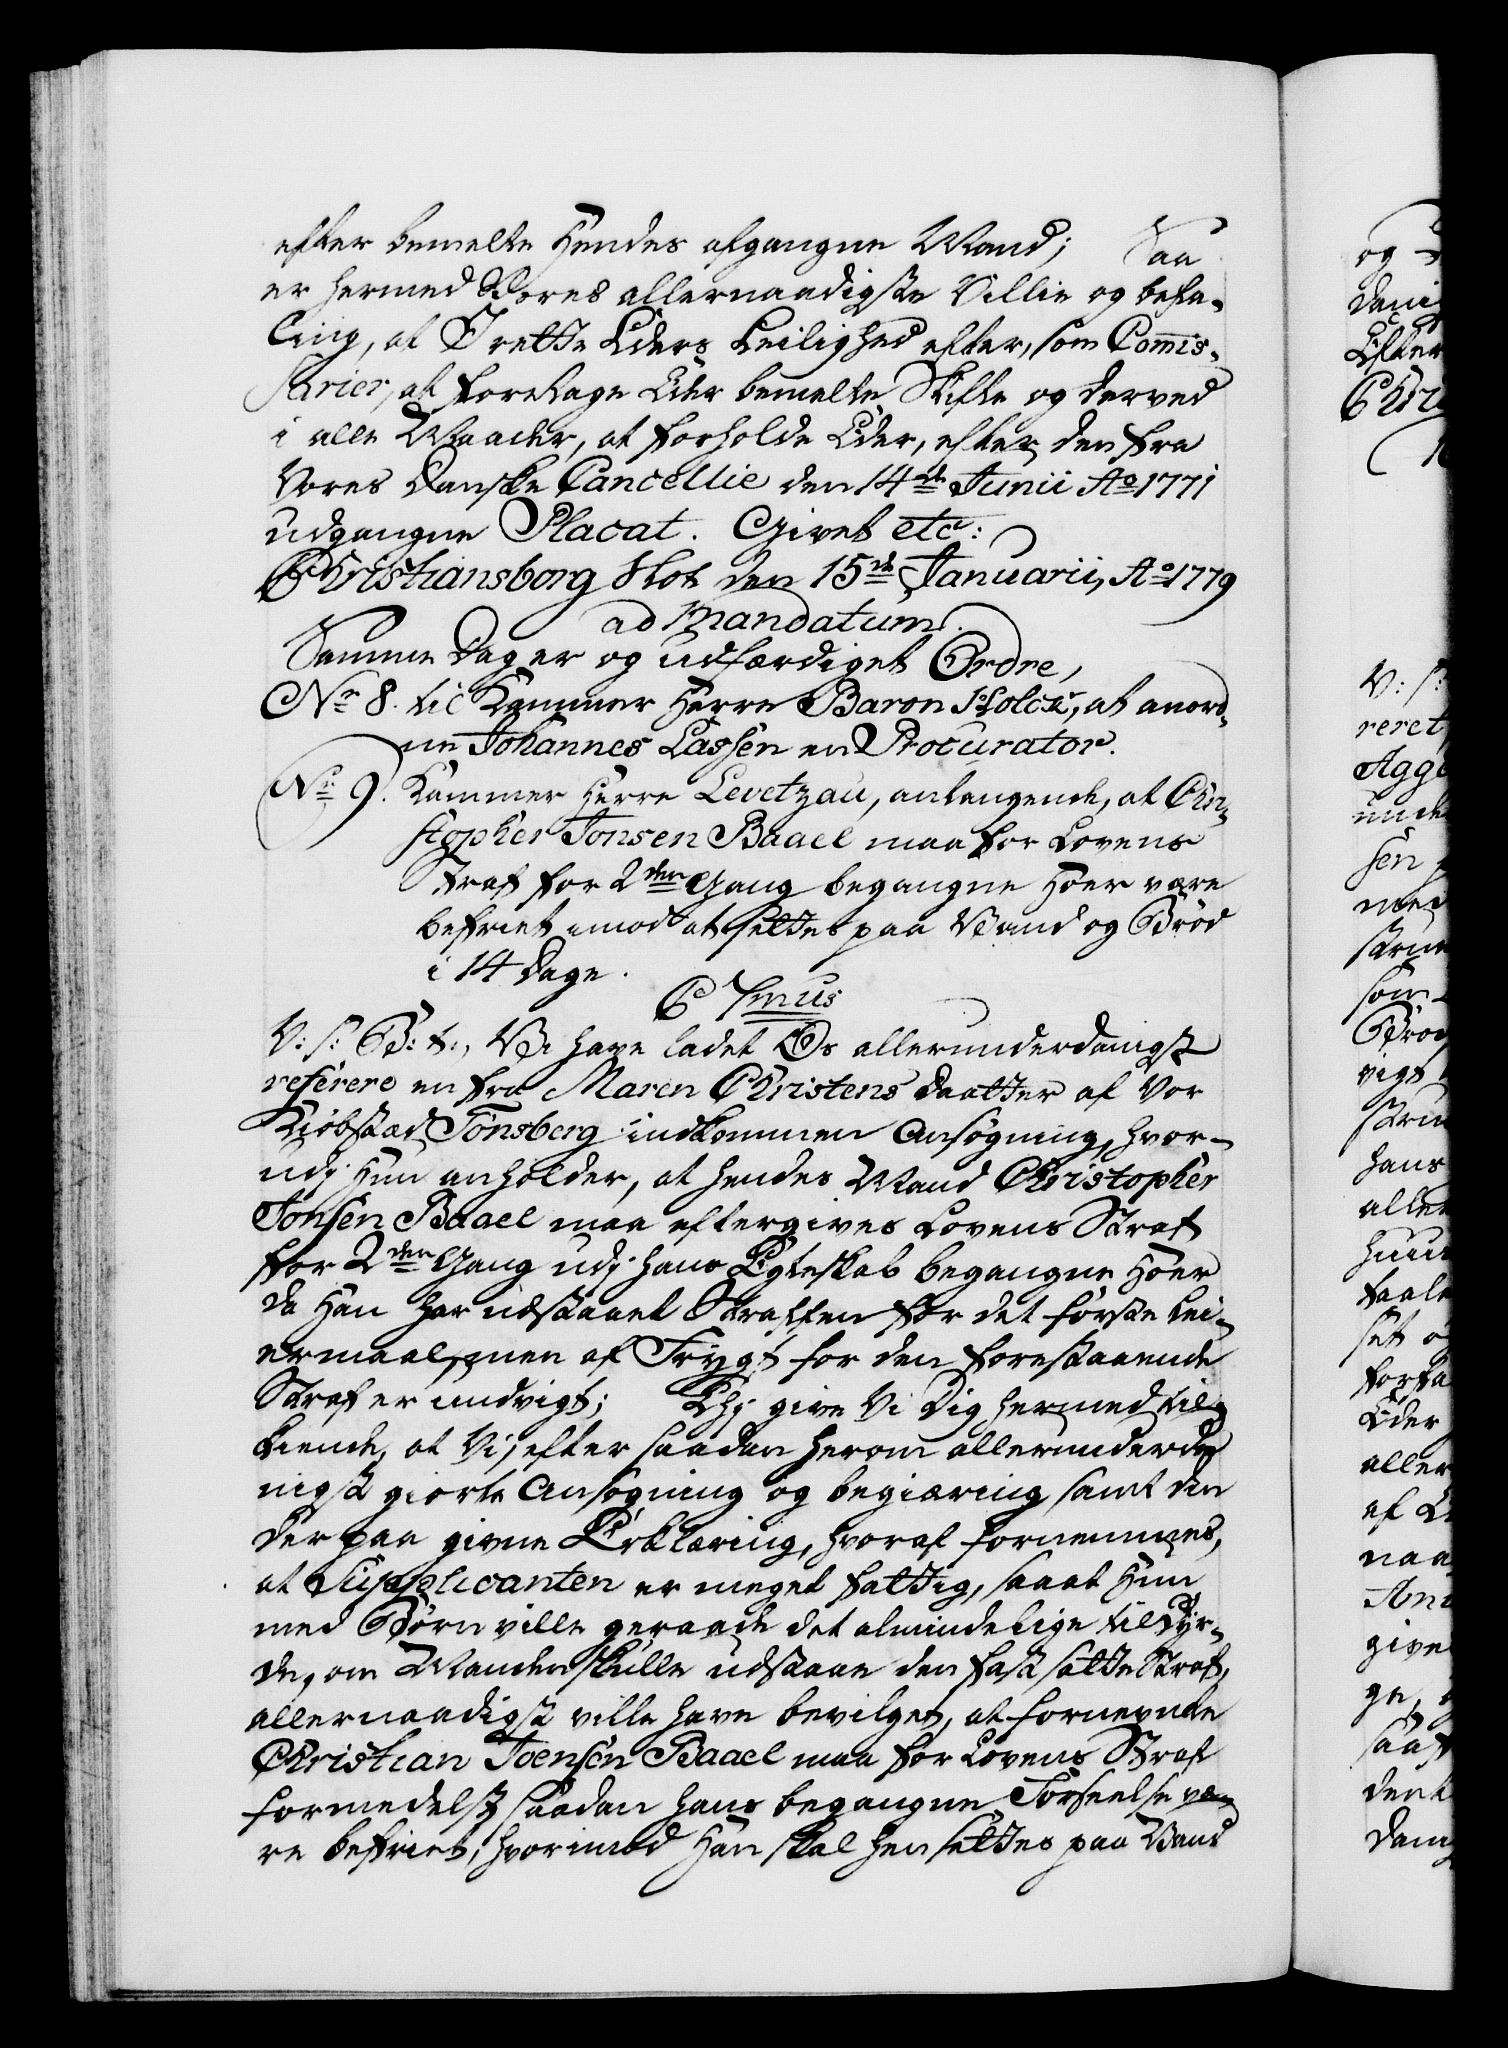 efter bemelte Hendes afgangne Mand; Saa
er hermed Vores allernaadigste Villie og befa-
ling, at I rette Eders Leilighed efter, som Comis-
sarier, at foretage Eder bemelte Skifte og derved
i alle Maader, at forholde Eder, efter den fra
Vores Danske Cancellie den 14de Junii Ao 1771
udgangne Placat. Givet etc:
Christiansborg Slot den 15de Januarii, Ao 1779
ad Mandatum.
Samme Dag er og udfærdiget Ordre,
No 8. til Kammer Herre Baron Holck, at anord-
ne Johannes Lassen en Procurator.
No 9. Kammer Herre Levetzau, anlangende, at Chri-
stopher Jonsen Baael maa for Lovens
Straf for 2den Gang begangne Hoer være
befriet imod at settes paa Vand og Brød
i 14 Dage.
C 7mus
V: S: G: t:, Vi have ladet Os allerunderdanigst
referere en fra Maren Christens Daatter af Vor
Kiøbstæd Tønsberg indkommen Ansøgning, hvor-
udj Hun anholder, at hendes Mand Christopher
Jonsen Baael maa eftergives Lovens Straf
for 2den Gang udj hans Egteskab begangne Hoer
da Han har udstaaet Straffen for det første Lei-
ermaal, men af Frygt for den forestaaende
Straf er undvigt; Thj give Vi Dig hermed til-
kiende, at Vi, efter saadan herom allerunderda-
nigst giorte Ansøgning og begiæring samt den
derpaa givne Erklæring, hvoraf fornemmes,
at Supplicanten er meget fattig, saaat Hun
med Børn ville geraade det almindelige til Byr-
de, om Manden skulle udstaae den fastsatte Straf,
allernaadigst ville have bevilget, at fornevnte
Christian Joensen Baael maa for Lovens Straf
formedelst saadan hans begangne Forseelse væ-
re befriet, hvorimod Han skal hensettes paa Vand